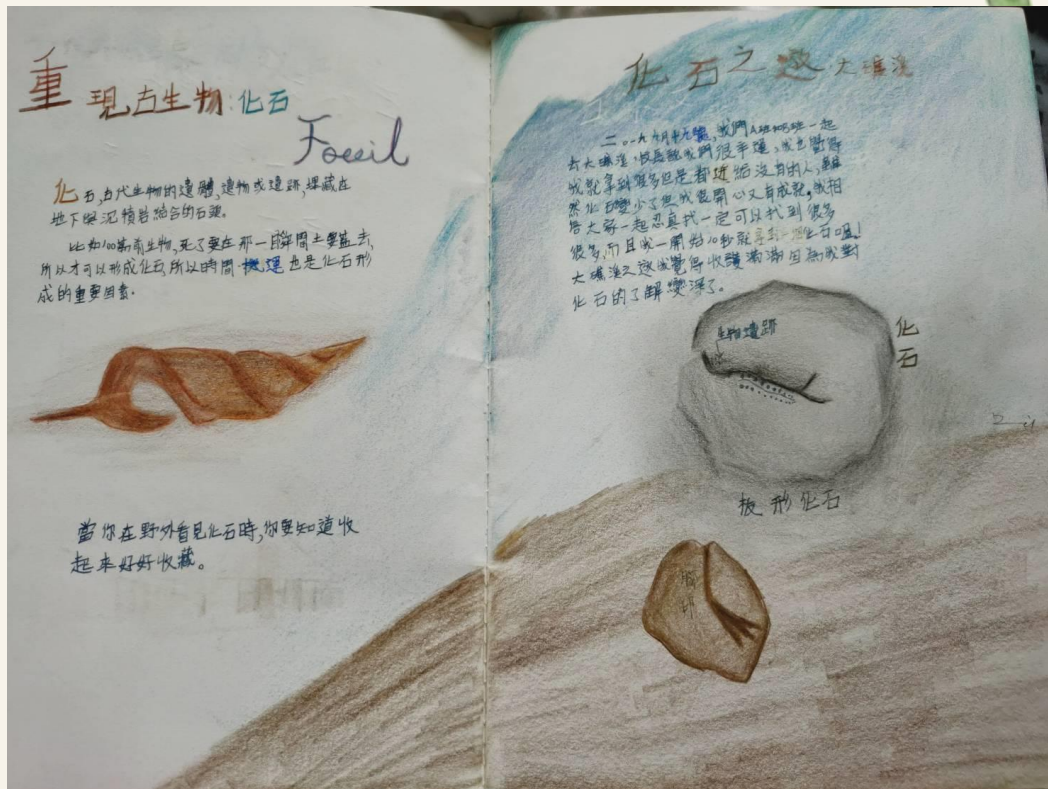 重現古生物:化石
Fossil
化石,古代生物的遺體,遺物或遺跡,埋藏在
地下與沉積岩結合的石頭。
比如100萬前生物,死了要在那一瞬間土要蓋去,
所以才可以形成化石,所以時間 機運 也是化石形
成的重要因素。
當你在野外看見化石時,你要知道收
起來好好收藏。
化石之旅 大礁溪
二〇一九 月十九號,我們A班和B班一起
去大礁溪,校長說我們很幸運,我也覺得
我就拿到很多但是都送給沒有的人,雖
然化石變少了但我很開心又有成就,我相
信大家一起忍真找一定可以找到很多
很多而且我一開始10秒就 化石喔!
大礁溪之旅我覺得收獲滿滿因為我對
化石的了解變深了。
生物遺跡
化
石
板形化石